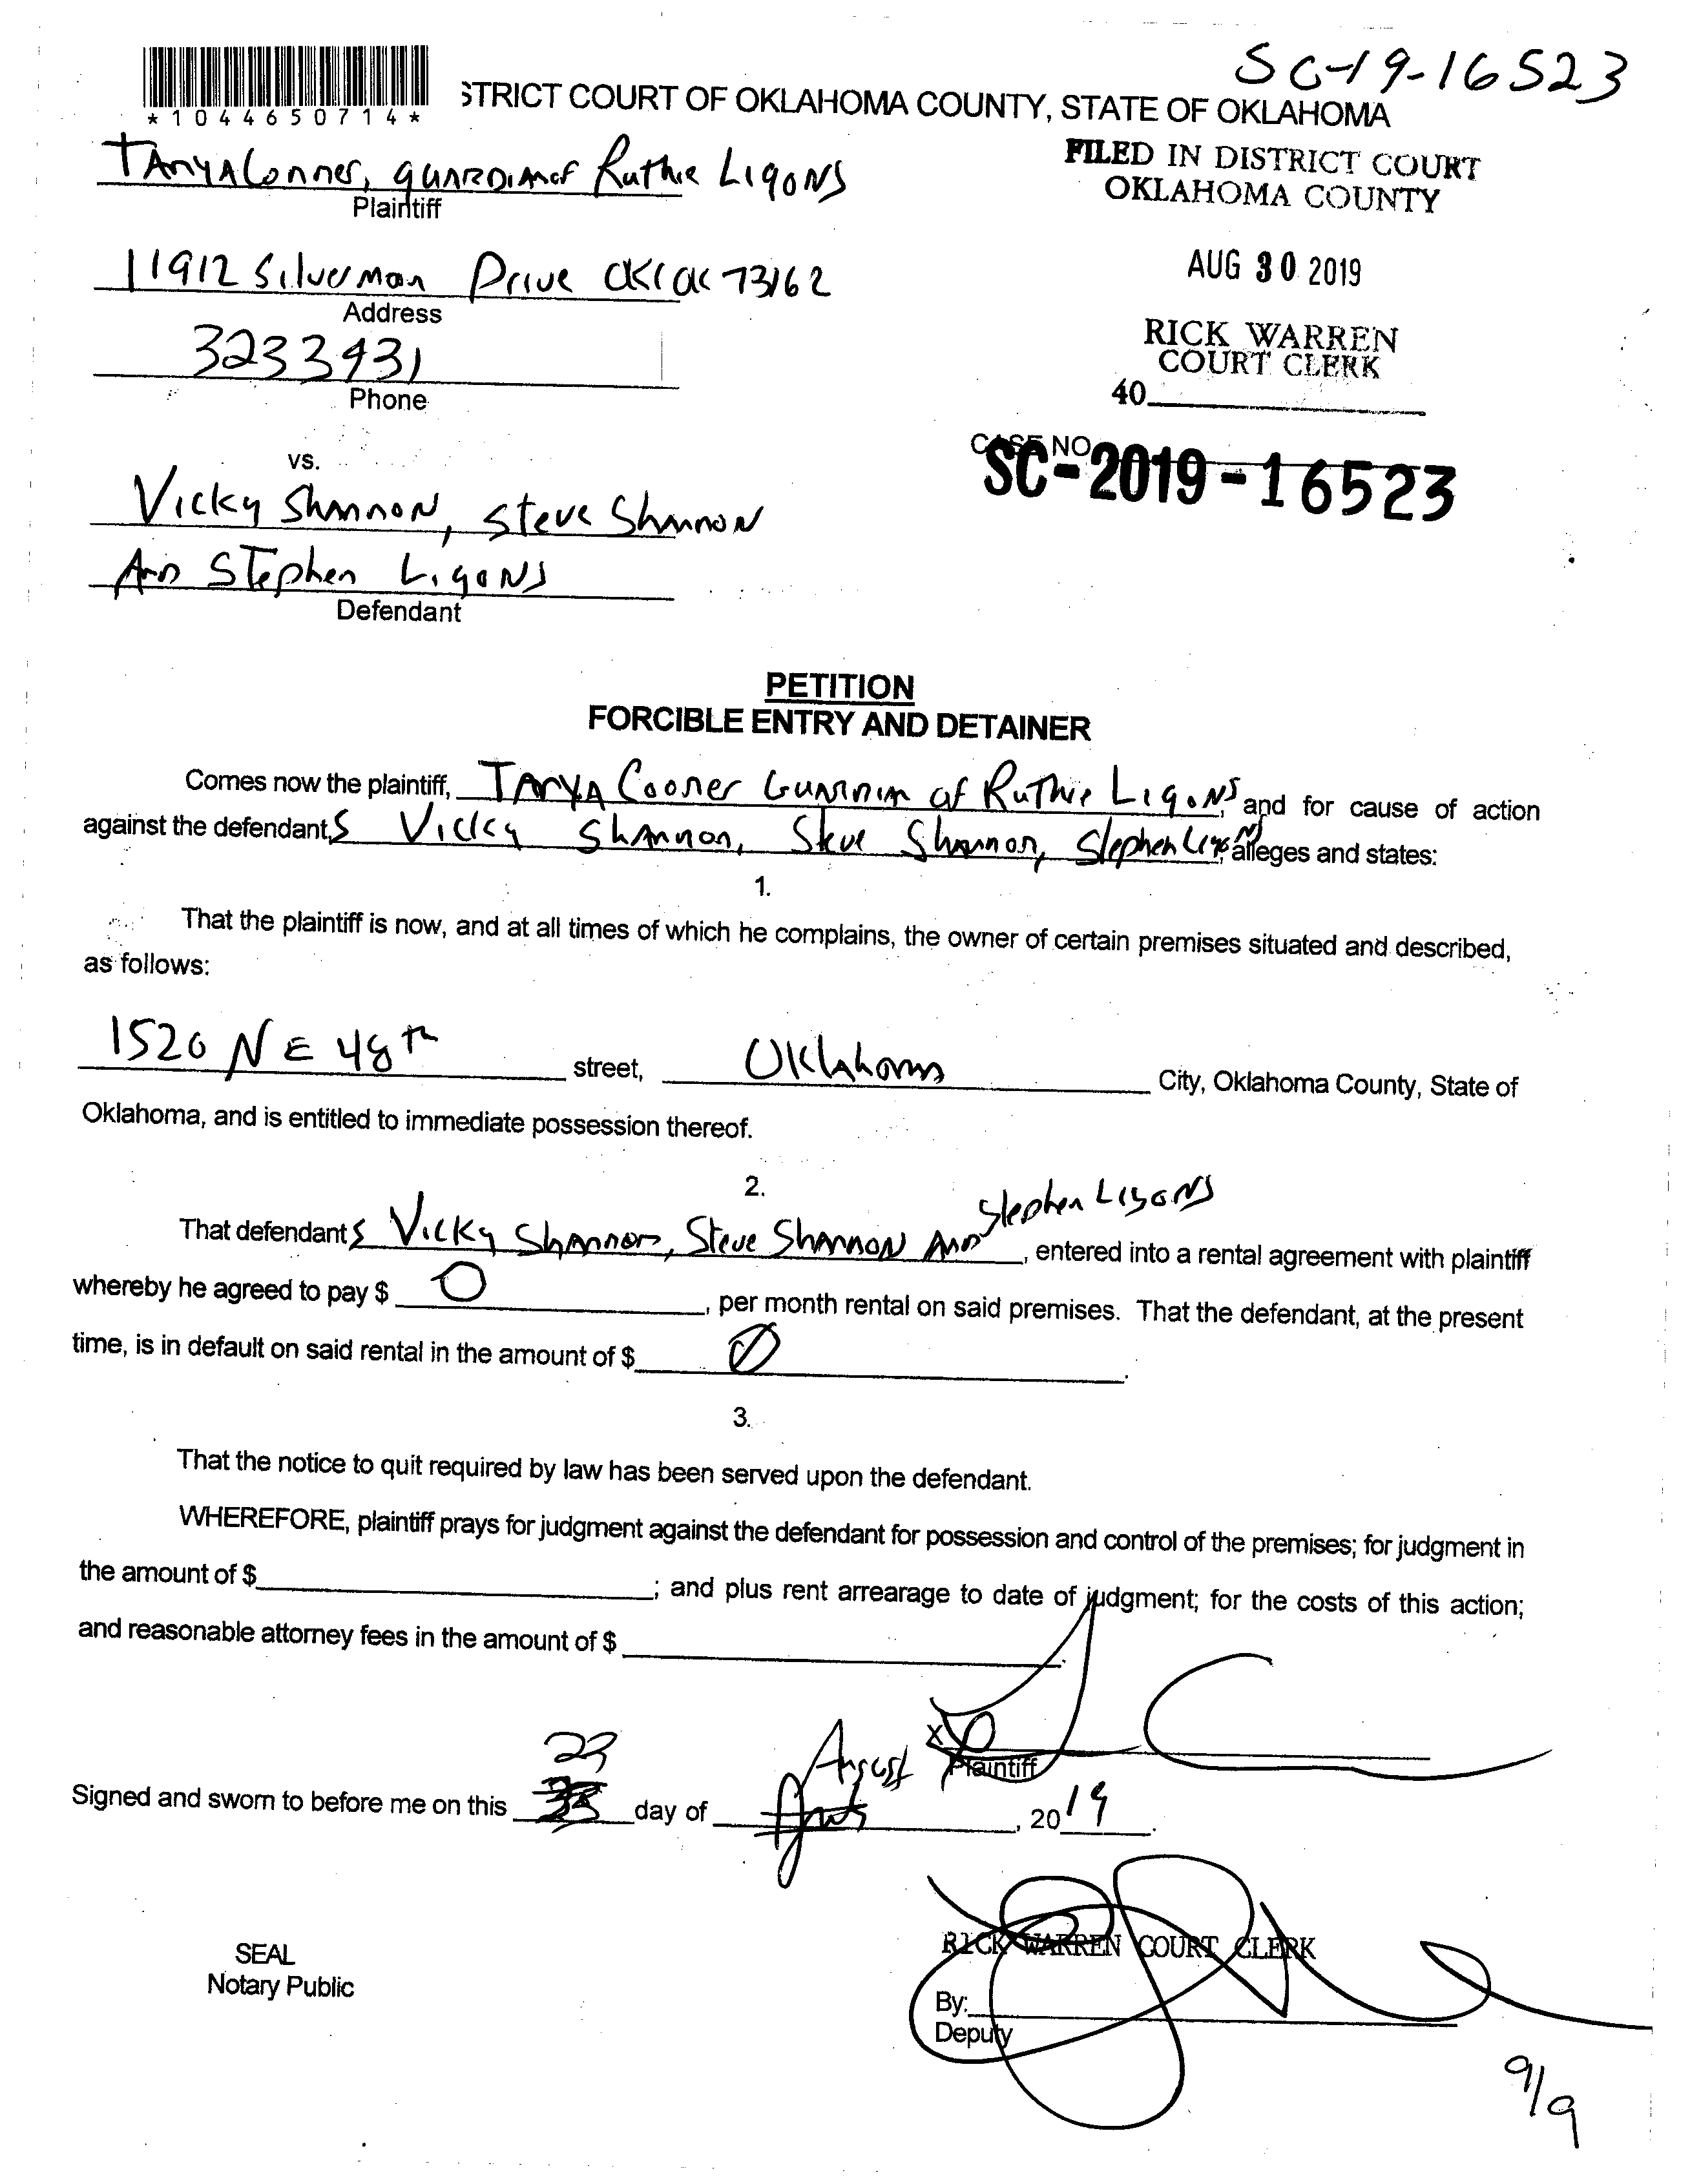 SC-19-16523
*1044650714*
STRICT COURT OF OKLAHOMA COUNTY, STATE OF OKLAHOMA
TANYA Conner, GUARDIAN of Ruthie LIGONS
Plaintiff
FILED IN DISTRICT COURT
OKLAHOMA COUNTY
11912 Silverman Drive OKC OK 73162
Address
AUG 30 2019
3233931
Phone
RICK WARREN
COURT CLERK
40
vs.
CASE NO
SC-2019-16523
Vicky Shannon, Steve Shannon
And Stephen Ligons
Defendant
PETITION
FORCIBLE ENTRY AND DETAINER
Comes now the plaintiff, TANYA Cooner Guardian of Ruthie LIGONS, and for cause of action
against the defendant,S Vicky Shannon, Steve Shannon, Stephen Ligons, alleges and states:
1.
That the plaintiff is now, and at all times of which he complains, the owner of certain premises situated and described,
as follows:
1520 NE 48th street, Oklahoma City, Oklahoma County, State of
Oklahoma, and is entitled to immediate possession thereof.
2.
That defendant S Vicky Shannon, Steve Shannon And Stephen Ligons, entered into a rental agreement with plaintiff
whereby he agreed to pay $ 0, per month rental on said premises. That the defendant, at the present
time, is in default on said rental in the amount of $ 0.
3.
That the notice to quit required by law has been served upon the defendant.
WHEREFORE, plaintiff prays for judgment against the defendant for possession and control of the premises; for judgment in
the amount of $ ; and plus rent arrearage to date of judgment; for the costs of this action;
and reasonable attorney fees in the amount of $ .
X
Plaintiff
Signed and sworn to before me on this 23 day of August, 2019.
RICK WARREN COURT CLERK
SEAL
Notary Public
By:
Deputy
9/9